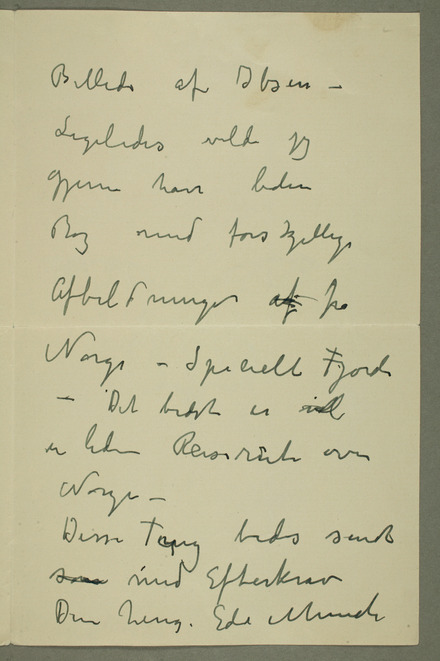 Billede af Ibsen –
Ligeledes vilde jeg
gjerne have liden
Bog med forskjellige
Afbildninger af fra
Norge – Specielt Fjorde
– Det bedste er vel
er liden Reiseroute over
Norge –
Disse Ting bedes sendt
som med Efterkrav
Din heng. Edv Munch